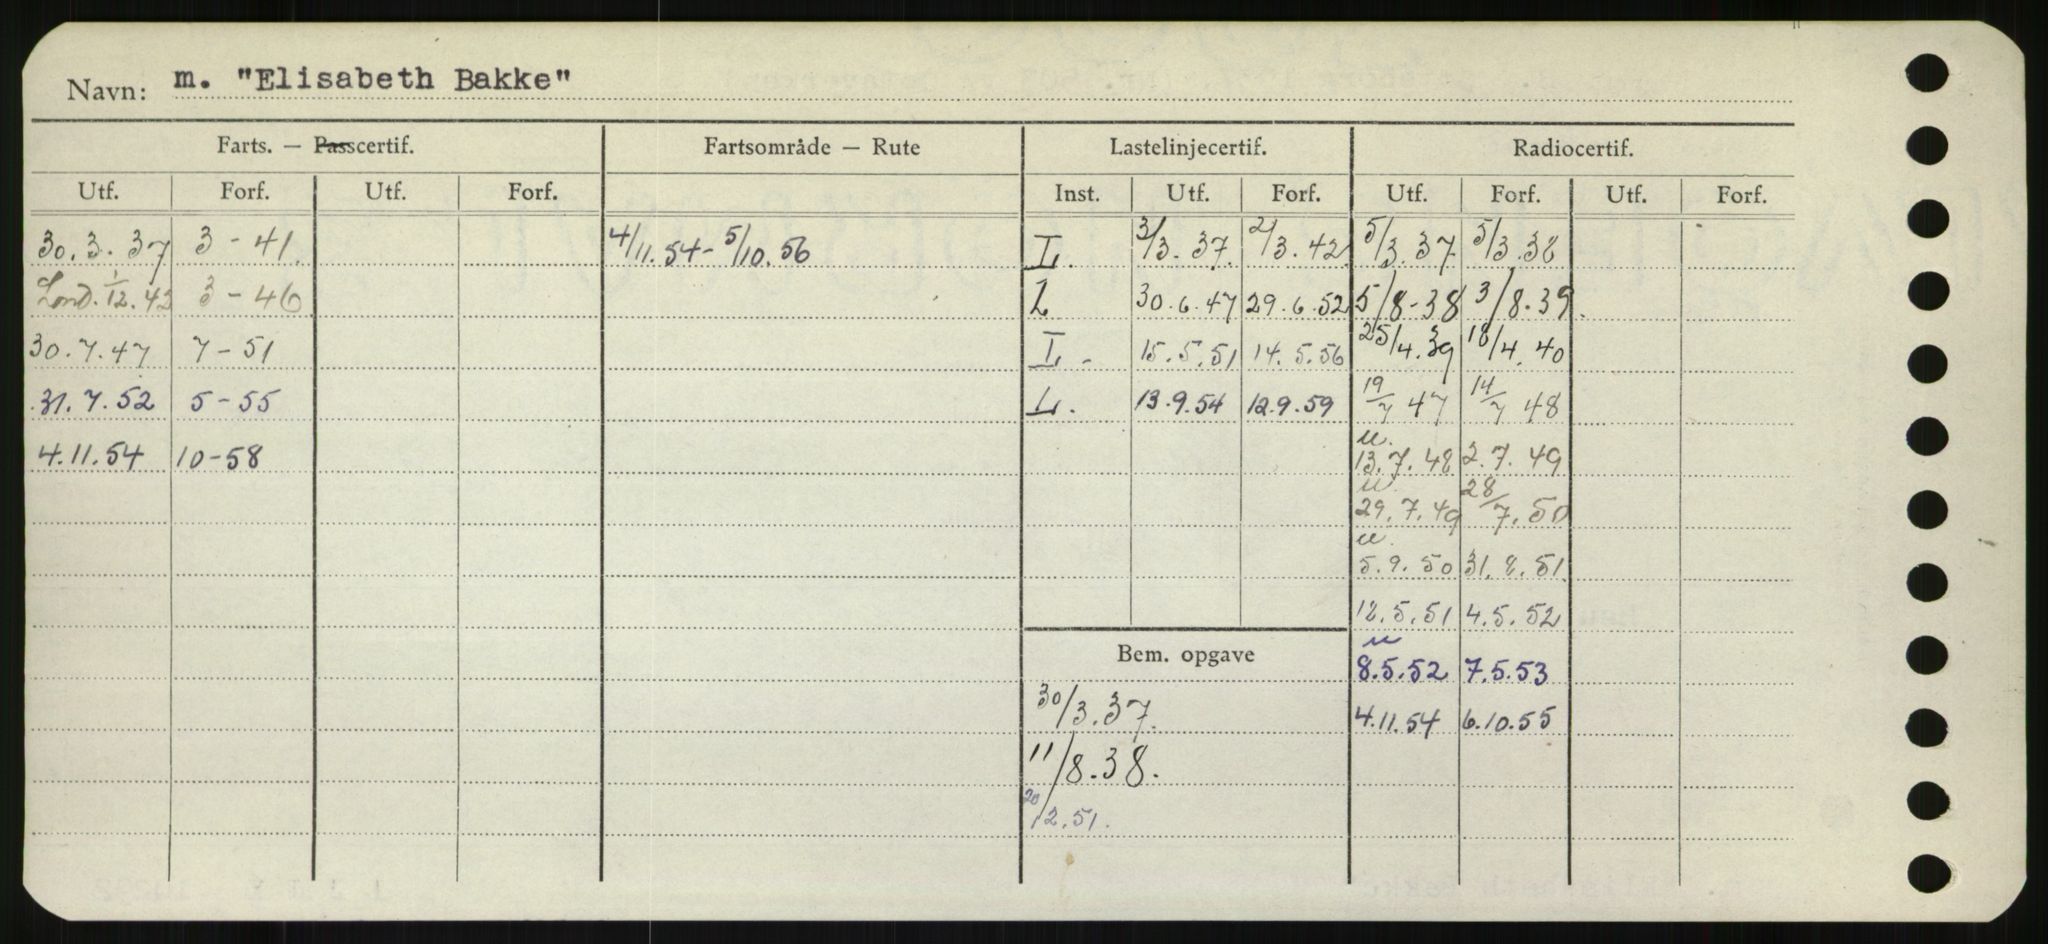 Navn: m. "Elisabeth Bakke"
Farts. — Passcertif. Fartsområde — Rute Lastelinjecertif. Radiocertif.
Utf. Forf. Utf. Forf. Inst. Utf. Forf. Utf. Forf. Utf. Forf.
30.3.37 3-41. 4/11.54-5/10.56 L. 3/3.37. 2/3.42 5/3.37 5/3.38
Lond. 1/12.42 3-46 L 30.6.47 29.6.52 5/8-38 3/8.39.
30.7.47 7-51 L- 15.5.51 14.5.56 25/4.39 18/4.40
31.7.52 5-55 L. 13.9.54 12.9.59 19/7 47 14/7 48
4.11.54 10-58 u. 13.7.48 2.7.49
u. 29.7.49 28/7.50
u. 5.9.50 31.8.51.
12.5.51 4.5.52
Bem. opgave u 8.5.52 7.5.53
30/3.37. 4.11.54 6.10.55
11/8.38.
20/12.51.